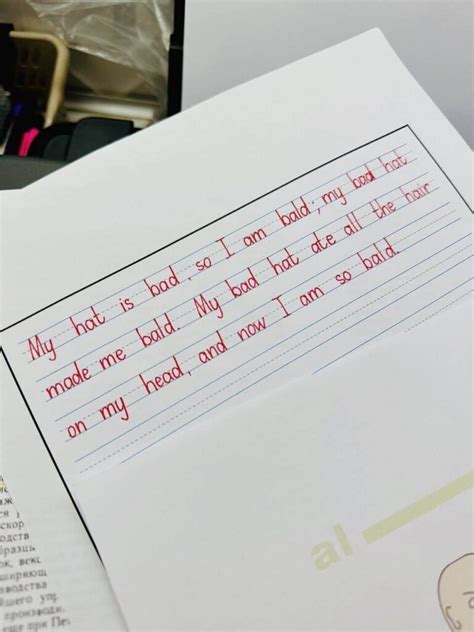 My hat is bad, so I am bald; my bad hat
made me bald. My bad hat ate all the hair
on my head, and now I am so bald.
al
скор
одств
ок, векс
ширяющ
зводства
йшего упр
производи
еще при Пе